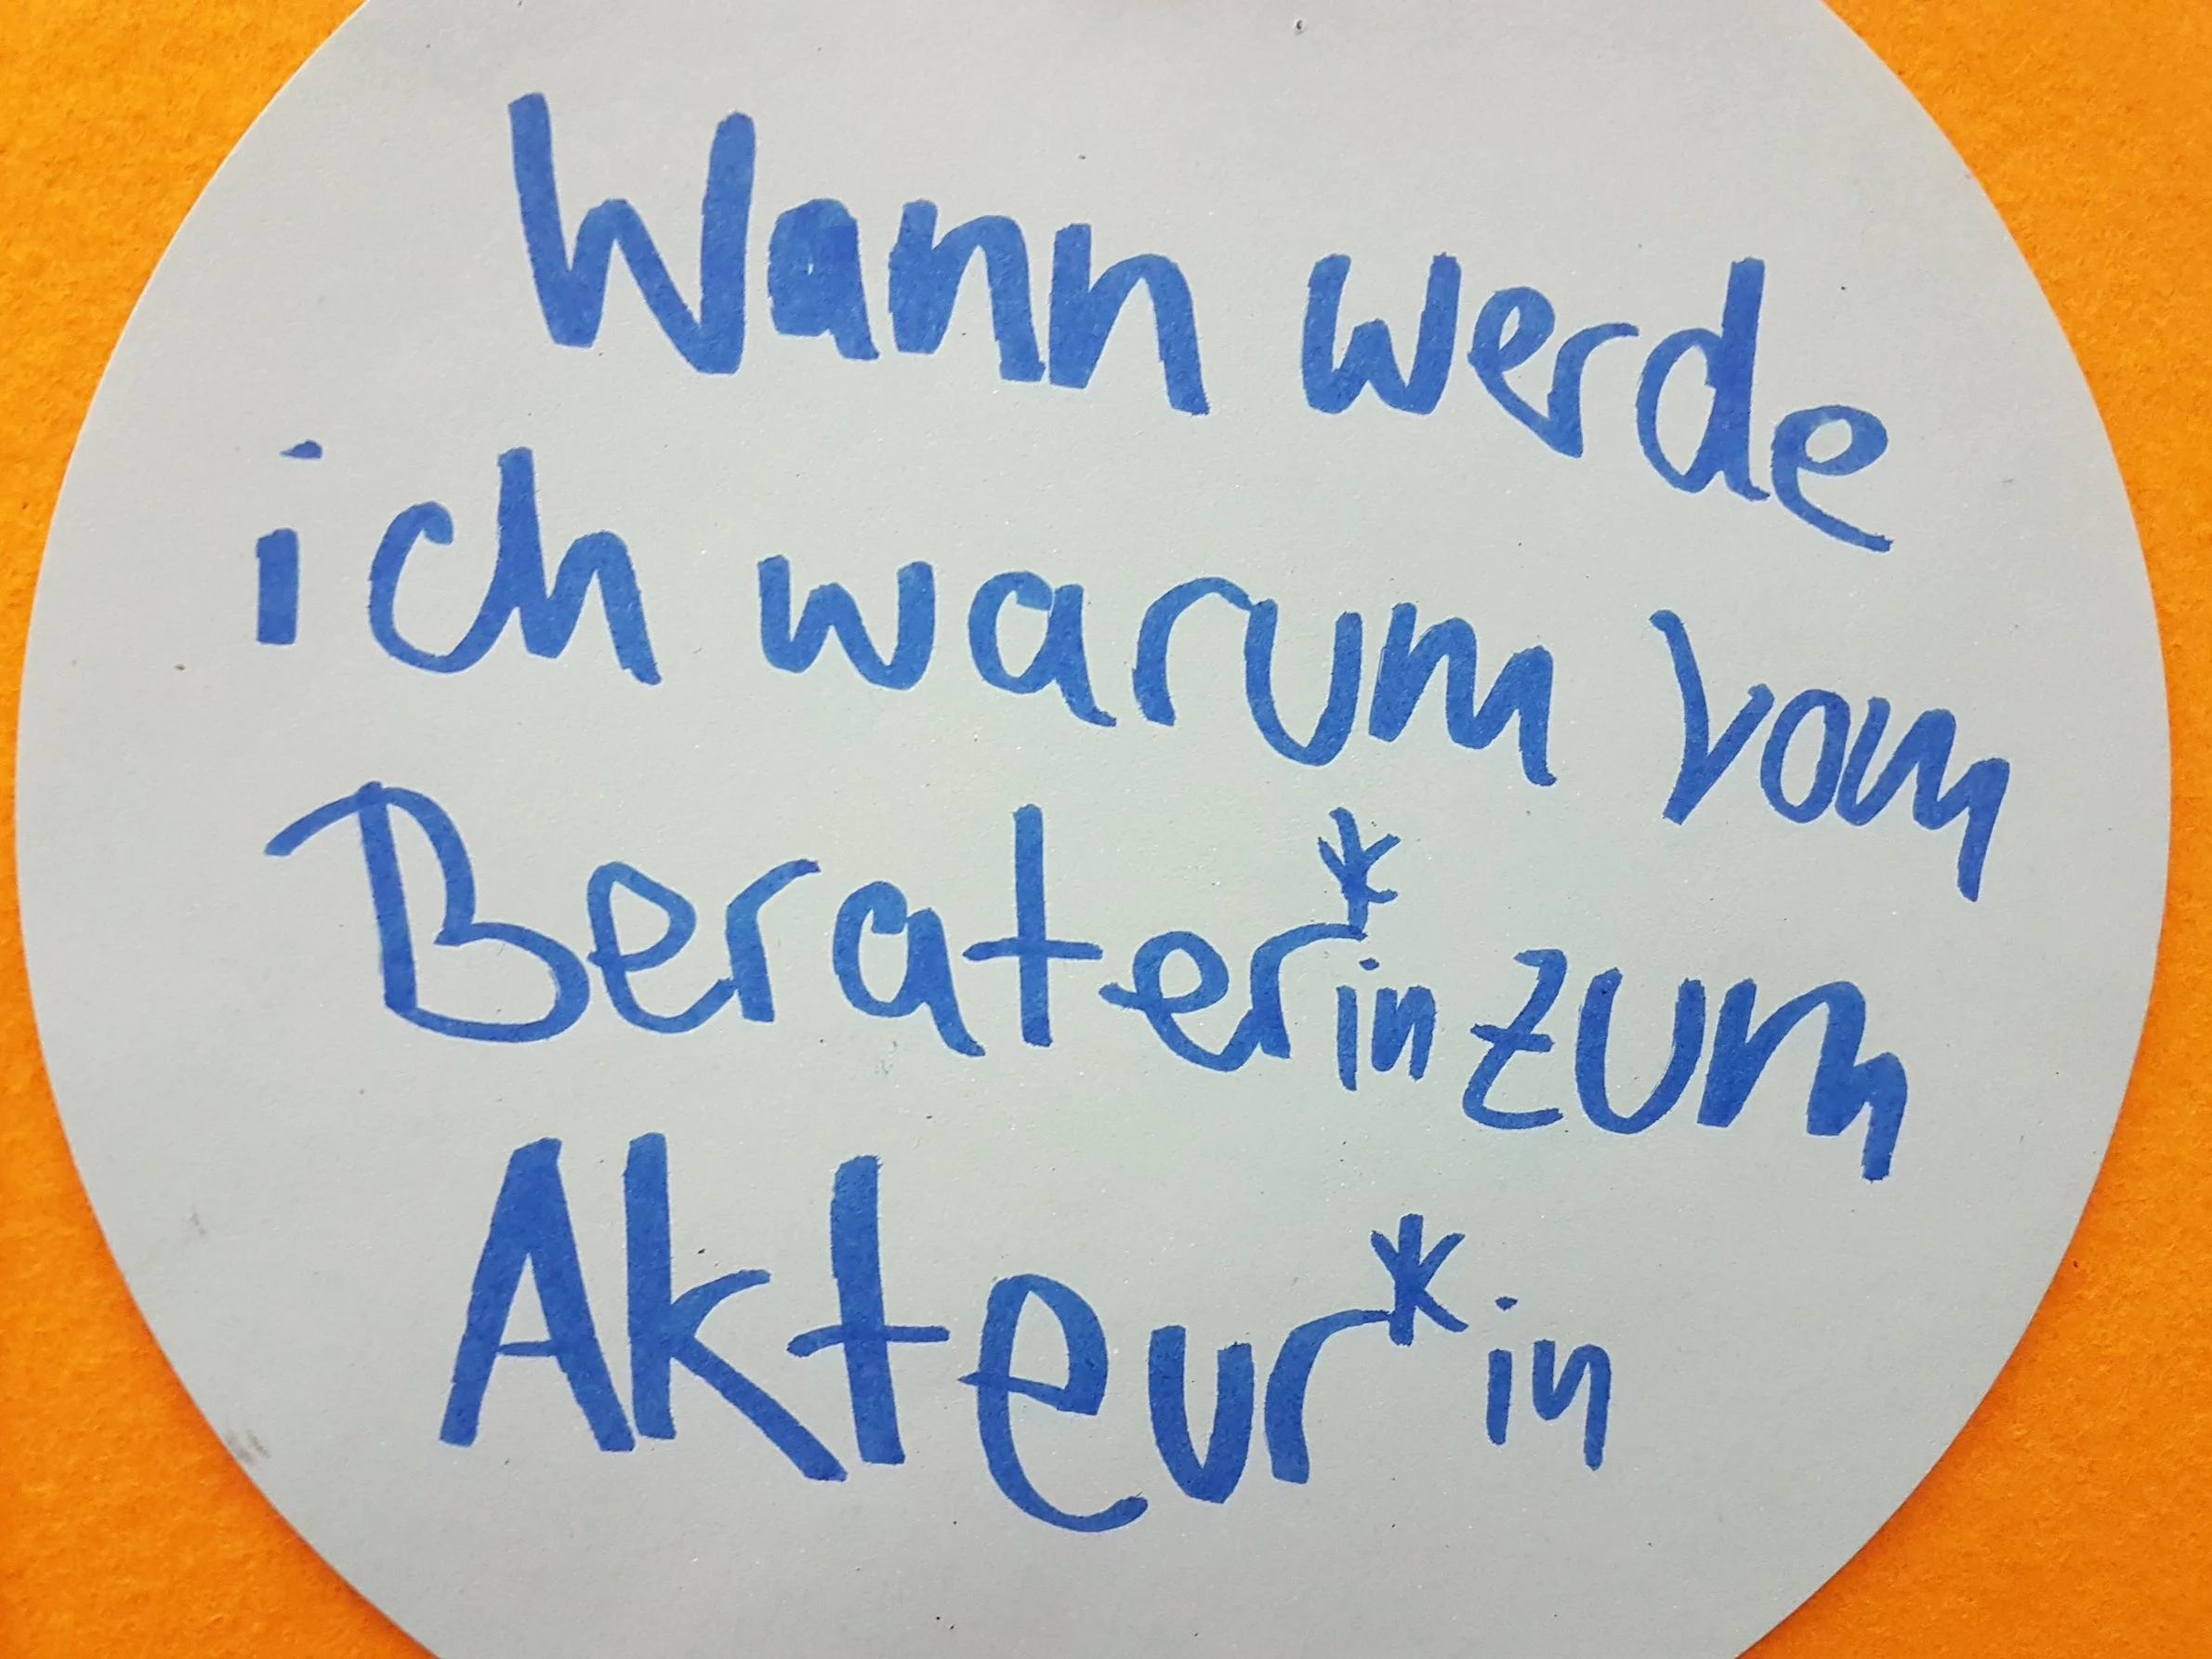 Wann werde
ich warum vom
Berater*in zum
Akteur*in